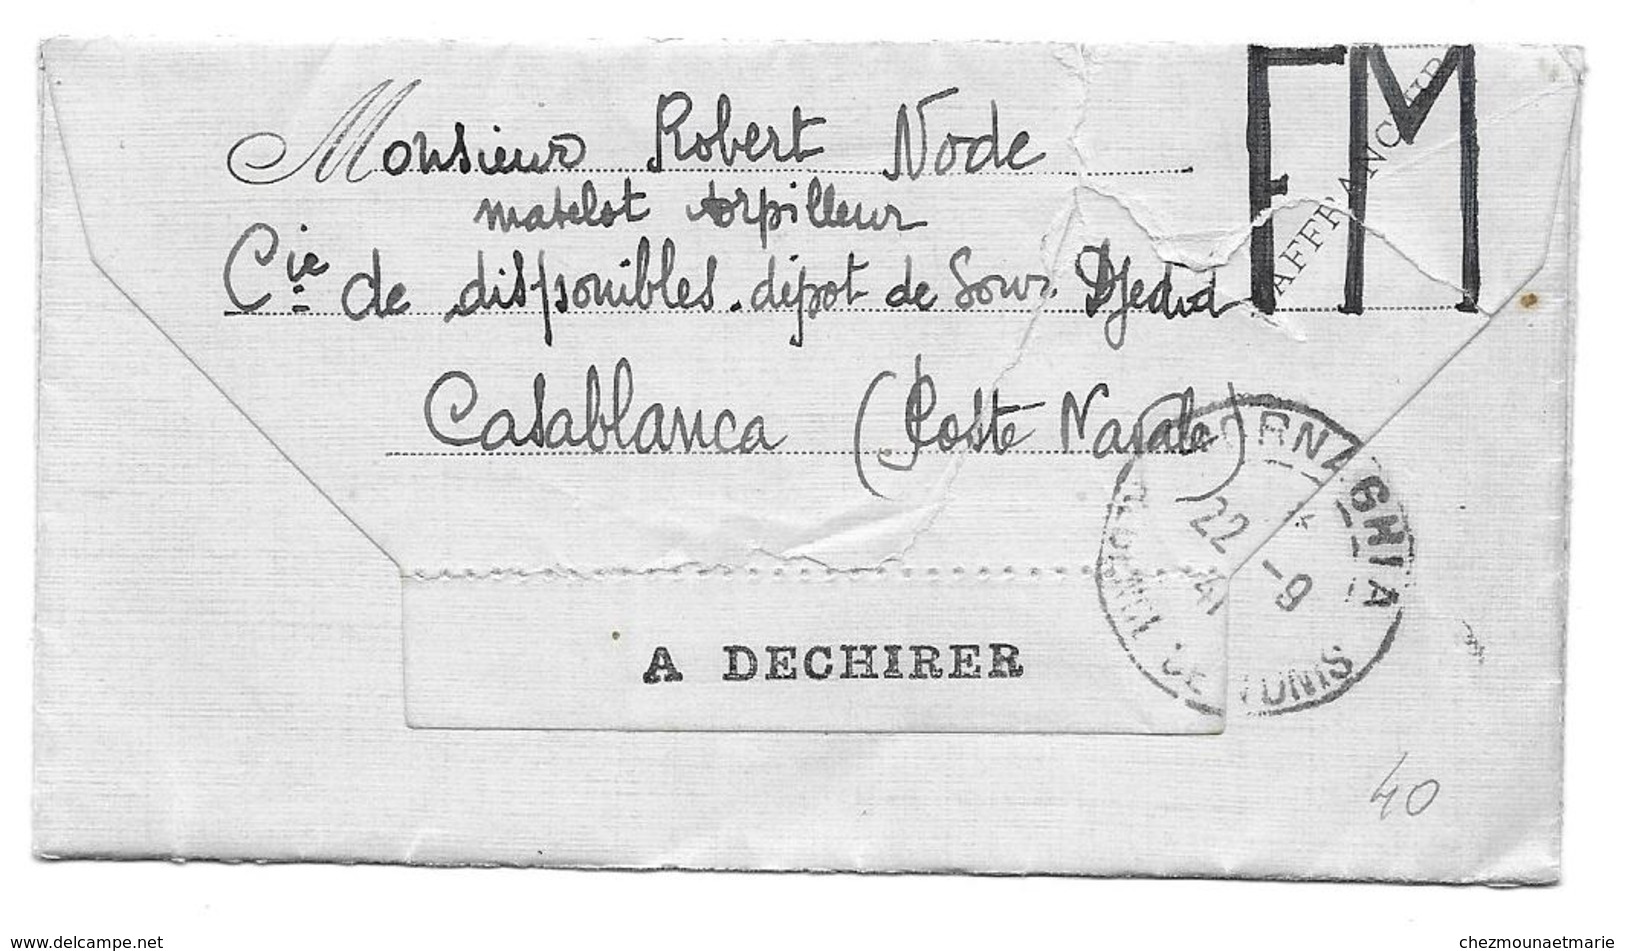 FM
AFFRANCHIR
Monsieur Robert Node
matelot torpilleur
Cie de disponibles. dépot de Sour Djedid
Casablanca (Poste Navale)
BORNA GHIA
22 -9
41
DE TUNIS
A DECHIRER
40
www.delcampe.net
chezmounaetmarie